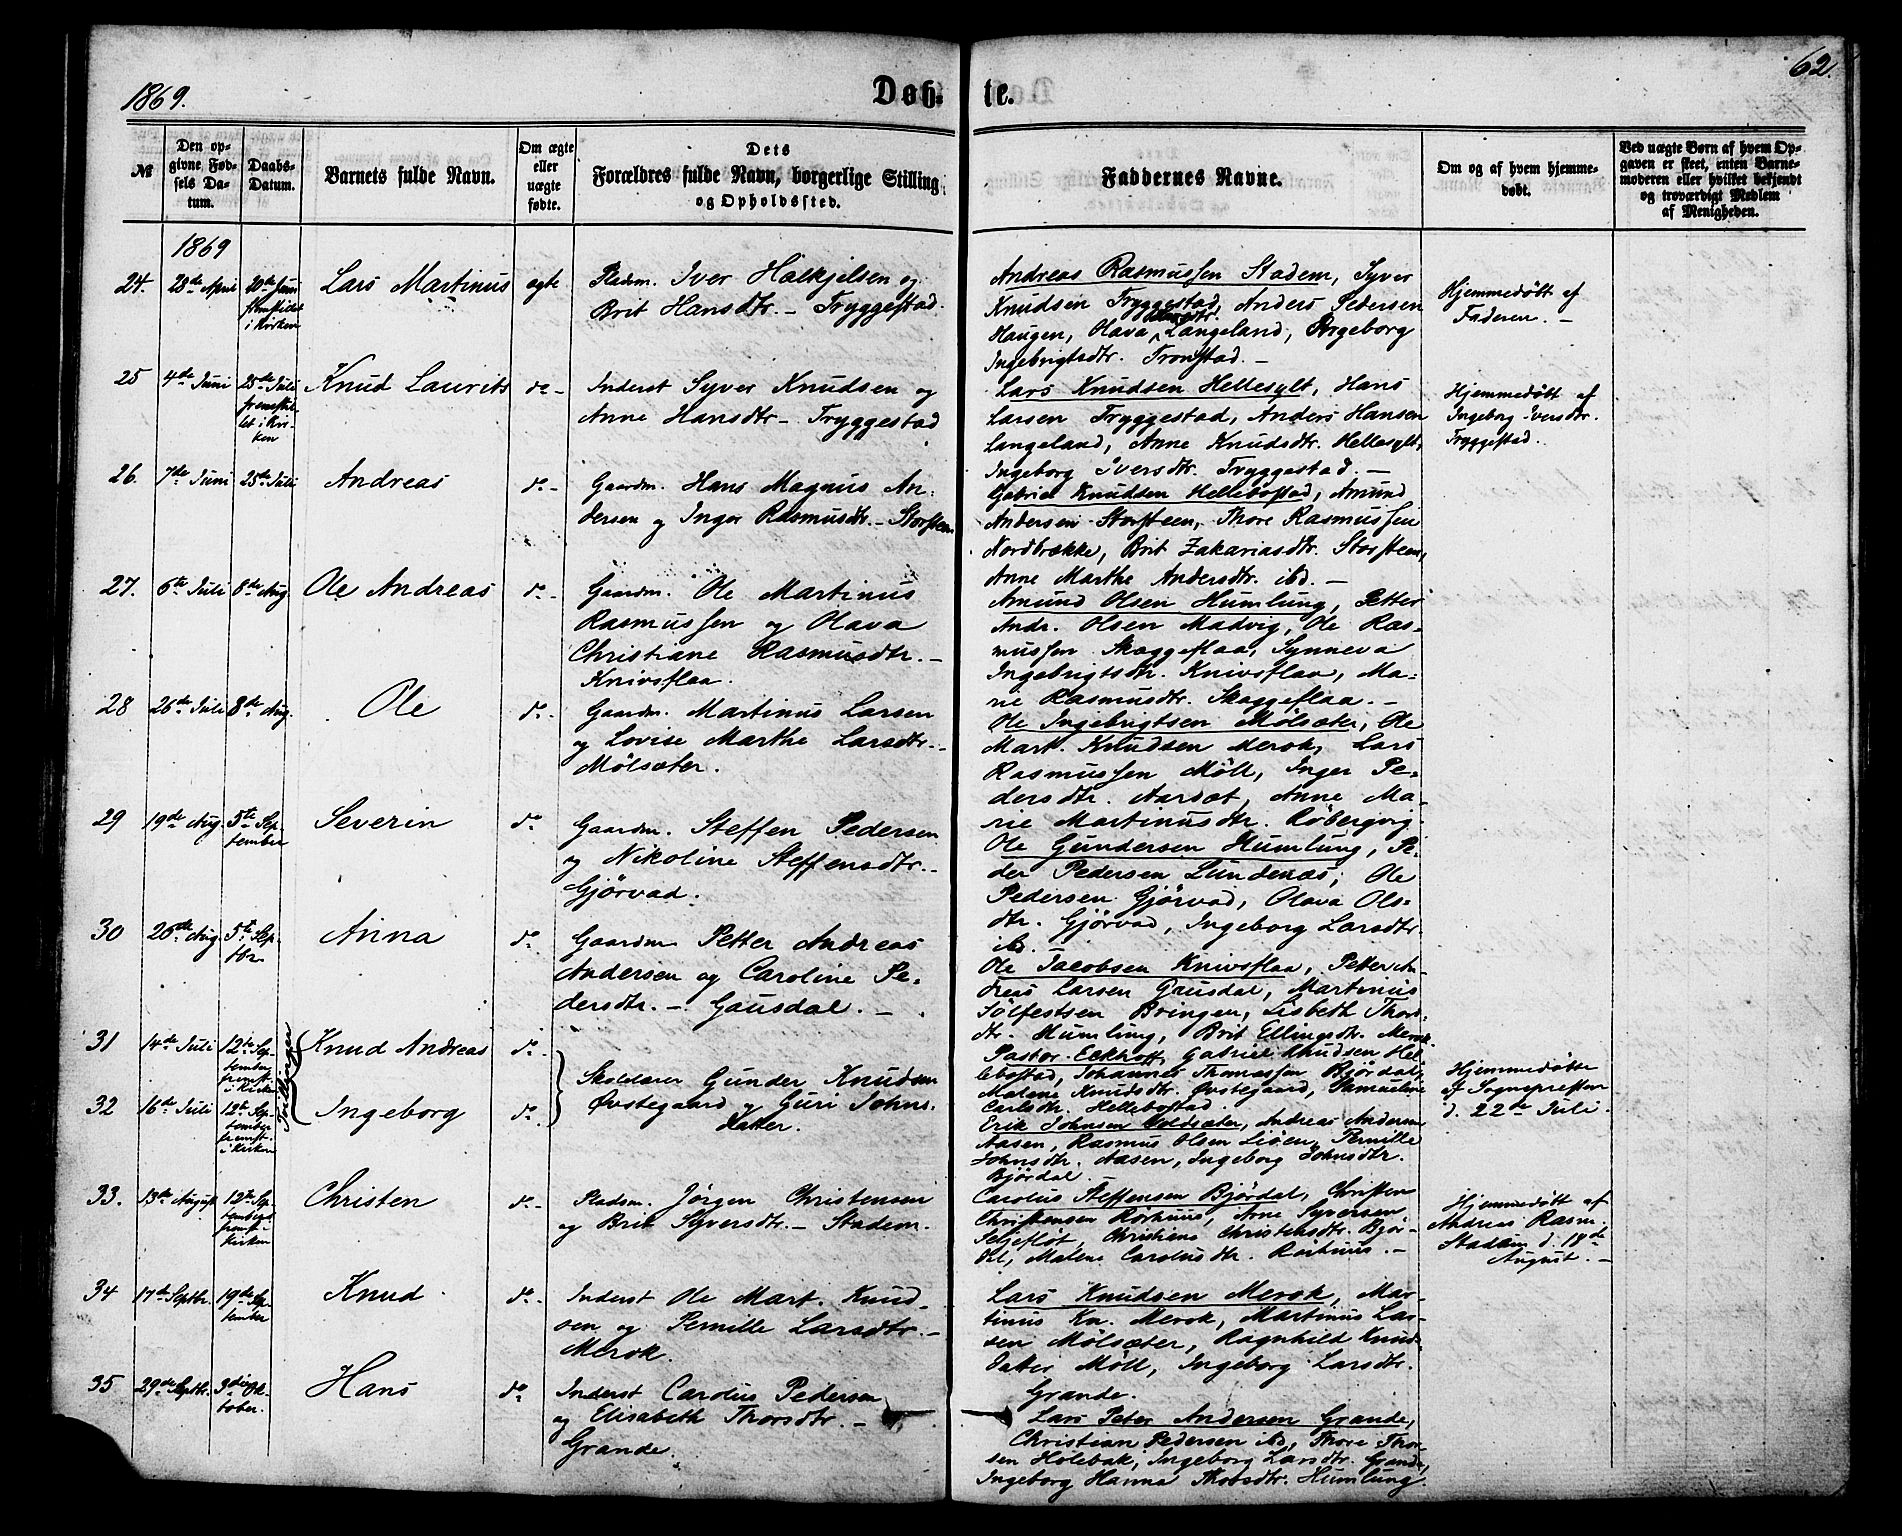 1869.
Døb-
te.
62.
№
Den op-
givne Fød-
sels Da-
tum.
Daabs-
Datum.
Barnets fulde Navn.
Om ægte
eller
uægte
fødte.
Dets
Forældres fulde Navn, borgerlige Stilling
og Opholdssted.
Faddernes Navne.
Om og af hvem hjemme-
døbt.
Ved uægte Børn af hvem Op-
gaven er skeet, enten Barne-
moderen eller hvilket bekjendt
og troværdigt Medlem
af Menigheden.
1869
24.
28de April
20de Juni
fremstillet
i Kirken
Lars Martinus
ægte
Pladsm. Iver Halkjelsen og
Brit Hansdtr. - Tryggestad.
Andreas Rasmussen Stadem, Syver
Knudsen Tryggestad, Anders Pedersen
Haugen, Olava Langeland, Ingeborg
Ingebrigtsdtr. Tronstad. -
Hjemmedøbt af
Faderen. -
25
4de Juni
25de Juli
fremstil-
let i Kir-
ken
Knud Laurits
do -
Inderst Syver Knudsen og
Anne Hansdtr - Tryggestad
Lars Knudsen Hellesylt, Hans
Larsen Tryggestad, Anders Hansen
Langeland, Anne Knudsdtr. Hellesylt,
Ingeborg Iversdtr. Tryggestad. -
Hjemmedøbt af
Ingeborg Iversdtr.
Tryggestad.
26.
7de Juni
25de Juli
Andreas
do -
Gaardm. Hans Magnus An-
dersen og Inger Rasmusdtr. - Storsteen
Gabriel Knudsen Hellebostad, Amund
Andersen Storsteen, Thore Rasmussen
Nordbrække, Brit Zakariasdtr. Storsteen,
Anne Marthe Andersdtr. ibd. -
27.
6te Juli
8de Aug
Ole Andreas
do -
Gaardm. Ole Martinus
Rasmussen og Olava
Christiane Rasmusdtr. -
Knivsflaa.
Amund Olsen Humlung, Petter
Andr. Olsen Madvig, Ole Ras-
mussen Skaggeflaa, Synneva
Ingebrigtsdtr. Knivsflaa, Ma-
rie Rasmusdtr. Skaggeflaa. -
28
26de Juli
8de Aug.
Ole
do -
Gaardm. Martinus Larsen
og Lovise Marthe Larsdtr. -
Mølsæter.
Ole Ingebrigtsen Mølsæter, Ole
Mart. Knudsen Merok, Lars
Rasmussen Møll, Inger Pe-
dersdtr. Aarset, Anne Ma-
rie Martinusdtr. Røbergvig.
29
19de Aug.
5te Sep-
tember
Severin
do
Gaardm. Steffen Pedersen
og Nikoline Steffensdtr. -
Gjørvad.
Ole Gundersen Humlung, Pe-
der Pedersen Lundenæs, Ole
Pedersen Gjørvad, Olava Ols-
dtr. Gjørvad, Ingeborg Larsdtr
ibd.
30
26de Aug.
5te Sep-
tbr
Anna
do
Gaardm Petter Andreas
Andersen og Caroline Pe-
dersdtr. - Gausdal. -
Ole Jacobsen Knivsflaa, Petter An-
dreas Larsen Gausdal, Martinus
Sølfestsen Bringen, Lisbeth Thors-
dtr. Humlung, Brit Ellingsdtr. Merok.
31
14de Juli
12te Sep-
tember
fremst.
i Kirken
Tvillinger
Knud Andreas
do -
Skolelærer Gunder Knudsen
Øvstegaard og Guri Johns-
datter.
Pastor Eckhoff, Gabriel Knudsen Hel-
lebostad, Johannes Thomassen Bjørdal,
Malene Knudsdtr. Øvstegaard, Samueline
Carlsdtr. Hellebostad.
Hjemmedøbte
af Sognepresten
d. 22de Juli.
32
16de Juli
12te Sep-
tember
fremst.
i Kirken
Ingeborg
do
Erik Johnsen Voldsæter, Andreas Andersen
Aasen, Rasmus Olsen Liøen, Pernille
Johnsdtr. Aasen, Ingeborg Johnsdtr.
Bjørdal. -
33.
13de August
12te Sep-
tember
fremst. i
Kirken
Christen
do -
Pladsm. Jørgen Christensen
og Brit Syversdtr. - Stadem.
Carolus Steffensen Bjørdal, Christen
Christensen Rørhuus, Arne Syversen
Seljeflot, Christiene Christensdtr. Bjør-
dal, Malene Carolusdtr. Rørhuus. -
Hjemmedøbt af
Andreas Rasm.
Stadem d. 18de
August. -
34
17de Septbr.
19de Sep-
tember
Knud
do -
Inderst Ole Mart. Knud-
sen og Pernille Larsdtr. -
Merok.
Lars Knudsen Merok, Mar-
tinus Kn. Merok, Martinus Lar-
sen Mølsæter, Ragnhild Knuds-
datter Møll, Ingeborg Larsdtr.
Grande.
35
29de Septbr.
3die Ok-
tober.
Hans
do
Inderst Carolus Pedersen
og Elisabeth Thorsdtr. -
Grande.
Lars Peter Andersen Grande,
Christian Pedersen ibd, Thore Thor-
sen Holebak, Ingeborg Larsdtr. Grande,
Ingeborg Hanna Thorsdtr. Humlung.